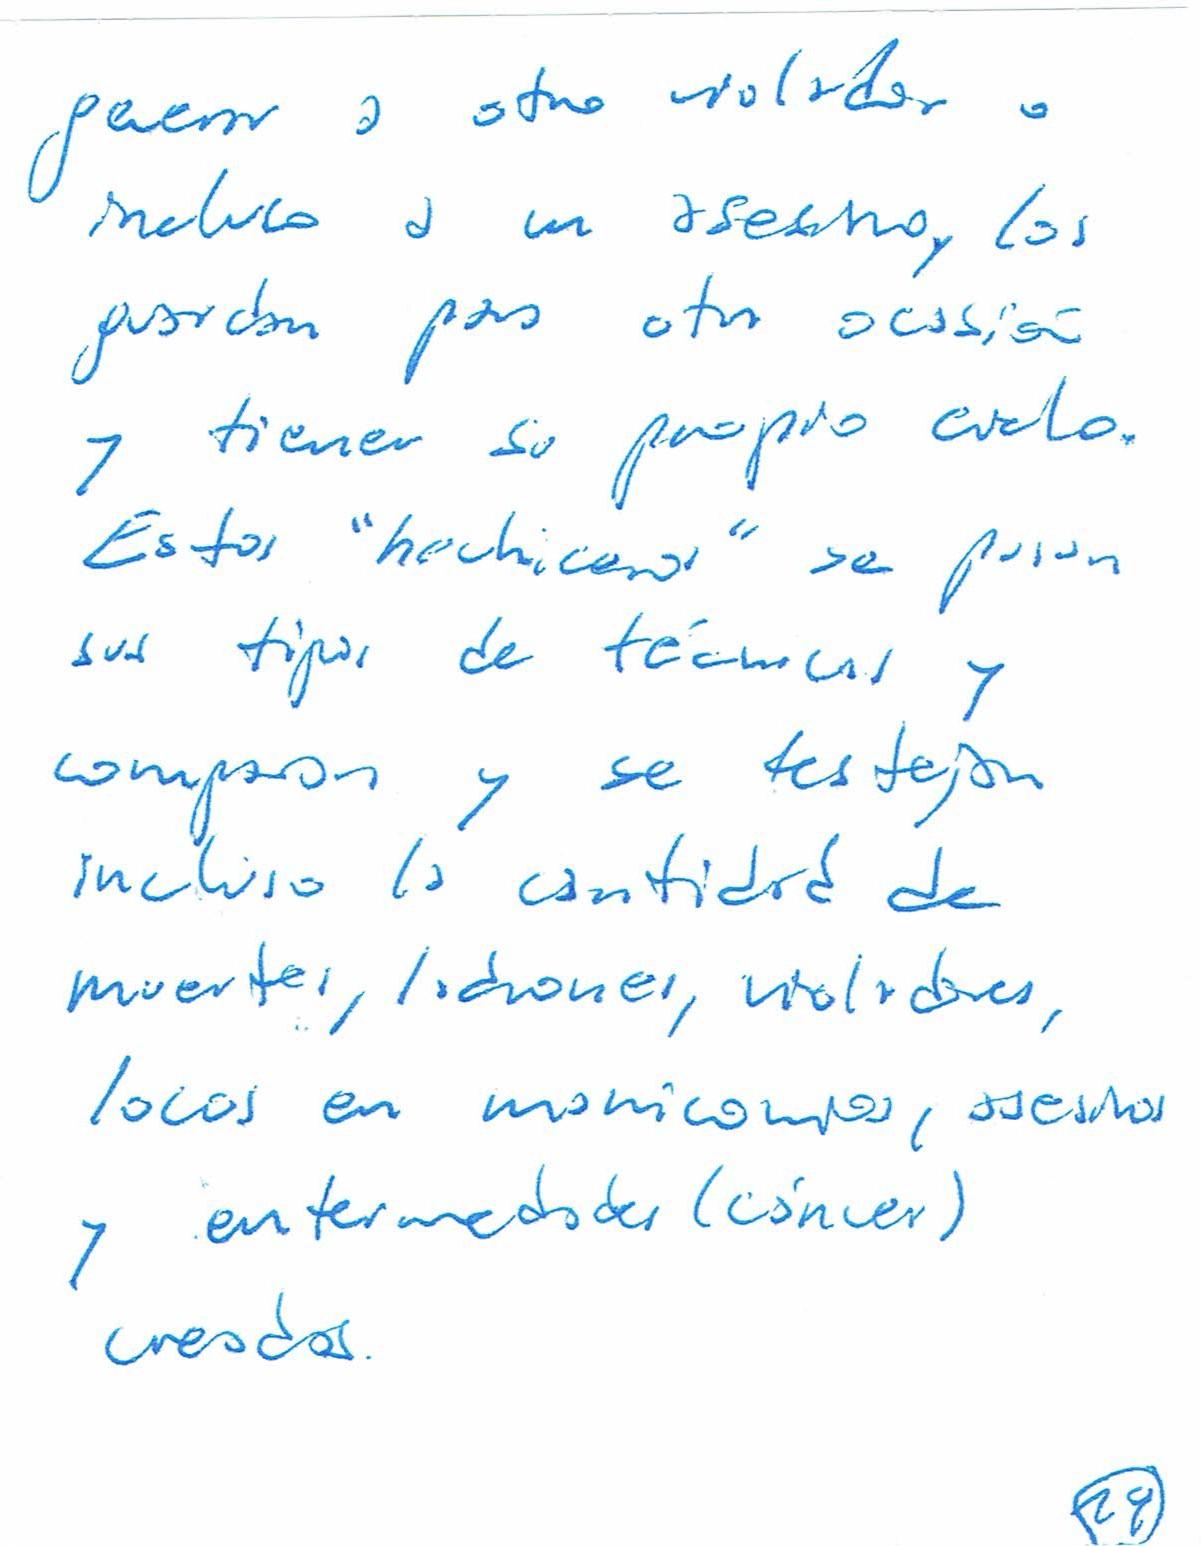 generar a otro violador o
incluso a un asesino, los
guardan para otra ocasión
y tienen su propio ciclo.
Estos "hechiceros" se pasan
sus tipos de técnicas y
comparan y se festejan
incluso la cantidad de
muertes, ladrones, violadores,
locos en manicomios, asesinos
y enfermedades (cáncer)
creadas.
24